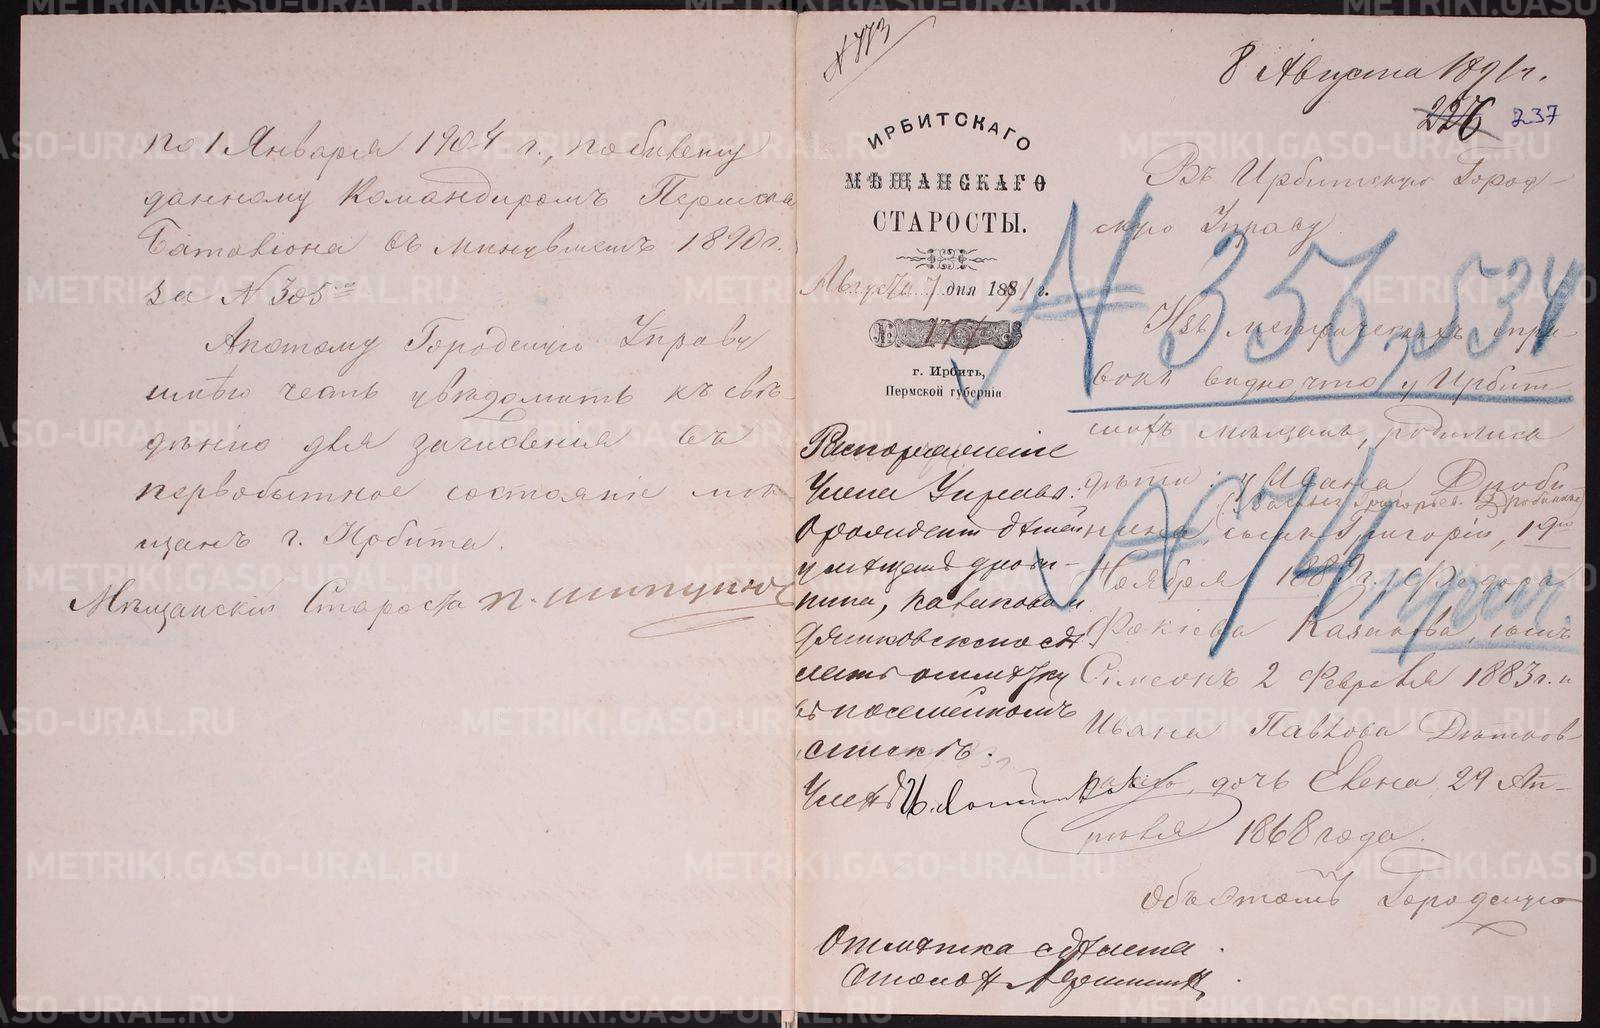 по 1 Января 1904 г., по билету
данному Командиромъ Пермска
Баталіона въ минувшемъ 1890 г.
за № 305
Апотому Городскую Управу
имѣю честь увѣдомить къ свѣ-
дѣнію для зачисленія въ
первобытное состояніе мѣ
щанъ г. Ирбита.
Мѣщанскій Староста П. Шипулин
№ 773
8 Августа 1891 г.
226 237
ИРБИТСКАГО
МѢЩАНСКАГО
СТАРОСТЫ.
Августа 7 дня 1891 г.
№
г. Ирбитъ,
Пермской губерніи
Въ Ирбитскую Город-
скую Управу
№ 356, 534
Изъ метрическихъ спра-
вокъ видно, что у Ирбит
скихъ мѣщанъ, родились
дѣти: у Ивана Дроби-
(Иванъ Григорьев. Дробининъ)
нина, сынъ Григорій, 19го
Ноября 1889 г., Федора
Фокіева Казакова, сынъ
Симеонъ 2 Февраля 1883 г. и
Ивана Павлова Дятков-
скаго, дочь Елена 29 Ап-
рѣля 1868 года.
Объ этомъ Городскую
№ 74
Распоряженіе
Члена Управы:
О рожденіи дѣтей
у мѣщанъ Дроби-
нина, Казакова и
Дятковскаго сдѣ
лать отмѣтку
въ посемейномъ
спискѣ.
Членъ И.
Отмѣтка сдѣлана
Столон.
METRIKI.GASO-URAL.RU